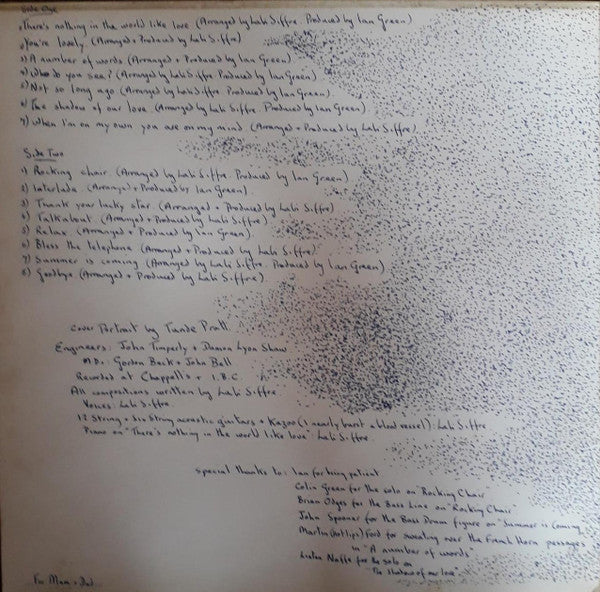 Side One
1) There's nothing in the world like love (Arranged by Labi Siffre. Produced by Ian Green)
2) You're lovely. (Arranged + Produced by Labi Siffre)
3) A number of words (Arranged + Produced by Ian Green)
4) Who do you see? (Arranged by Labi Siffre Produced by Ian Green)
5) Not so long ago (Arranged by Labi Siffre. Produced by Ian Green)
6) The shadow of our love. (Arranged by Labi Siffre. Produced by Ian Green)
7) When I'm on my own you are on my mind (Arranged + Produced by Labi Siffre)
Side Two
1) Rocking chair (Arranged by Labi Siffre Produced by Ian Green)
2) Interlude (Arranged + Produced by Ian Green)
3) Thank your lucky star (Arranged + Produced by Labi Siffre)
4) Talkabout (Arranged + Produced by Labi Siffre)
5) Relax (Arranged + Produced by Ian Green)
6) Bless the telephone (Arranged + Produced by Labi Siffre)
7) Summer is coming (Arranged by Labi Siffre. Produced by Ian Green)
8) Goodbye (Arranged + Produced by Labi Siffre)
Cover Portrait by Tande Pratt
Engineers: John Timperly + Damon Lyon Shaw
M.D.: Gordon Beck + John Bell
Recorded at Chappell's + I.B.C.
All compositions written by Labi Siffre
Voices: Labi Siffre.
12 String + six String acoustic guitars + Kazoo (I nearly burst a blood vessel). Labi Siffre
Piano on "There's nothing in the world like love" Labi Siffre.
Special thanks to: Ian for being patient
Colin Green for the solo on "Rocking Chair"
Brian Odges for the Bass Line on "Rocking Chair"
John Spooner for the Bass Drum figure on "Summer is coming"
Martin (hot lips) Ford for sweating over the French Horn passages
in "A number of words"
for the solo on
"The shadow of our love".
For Mum + Dad